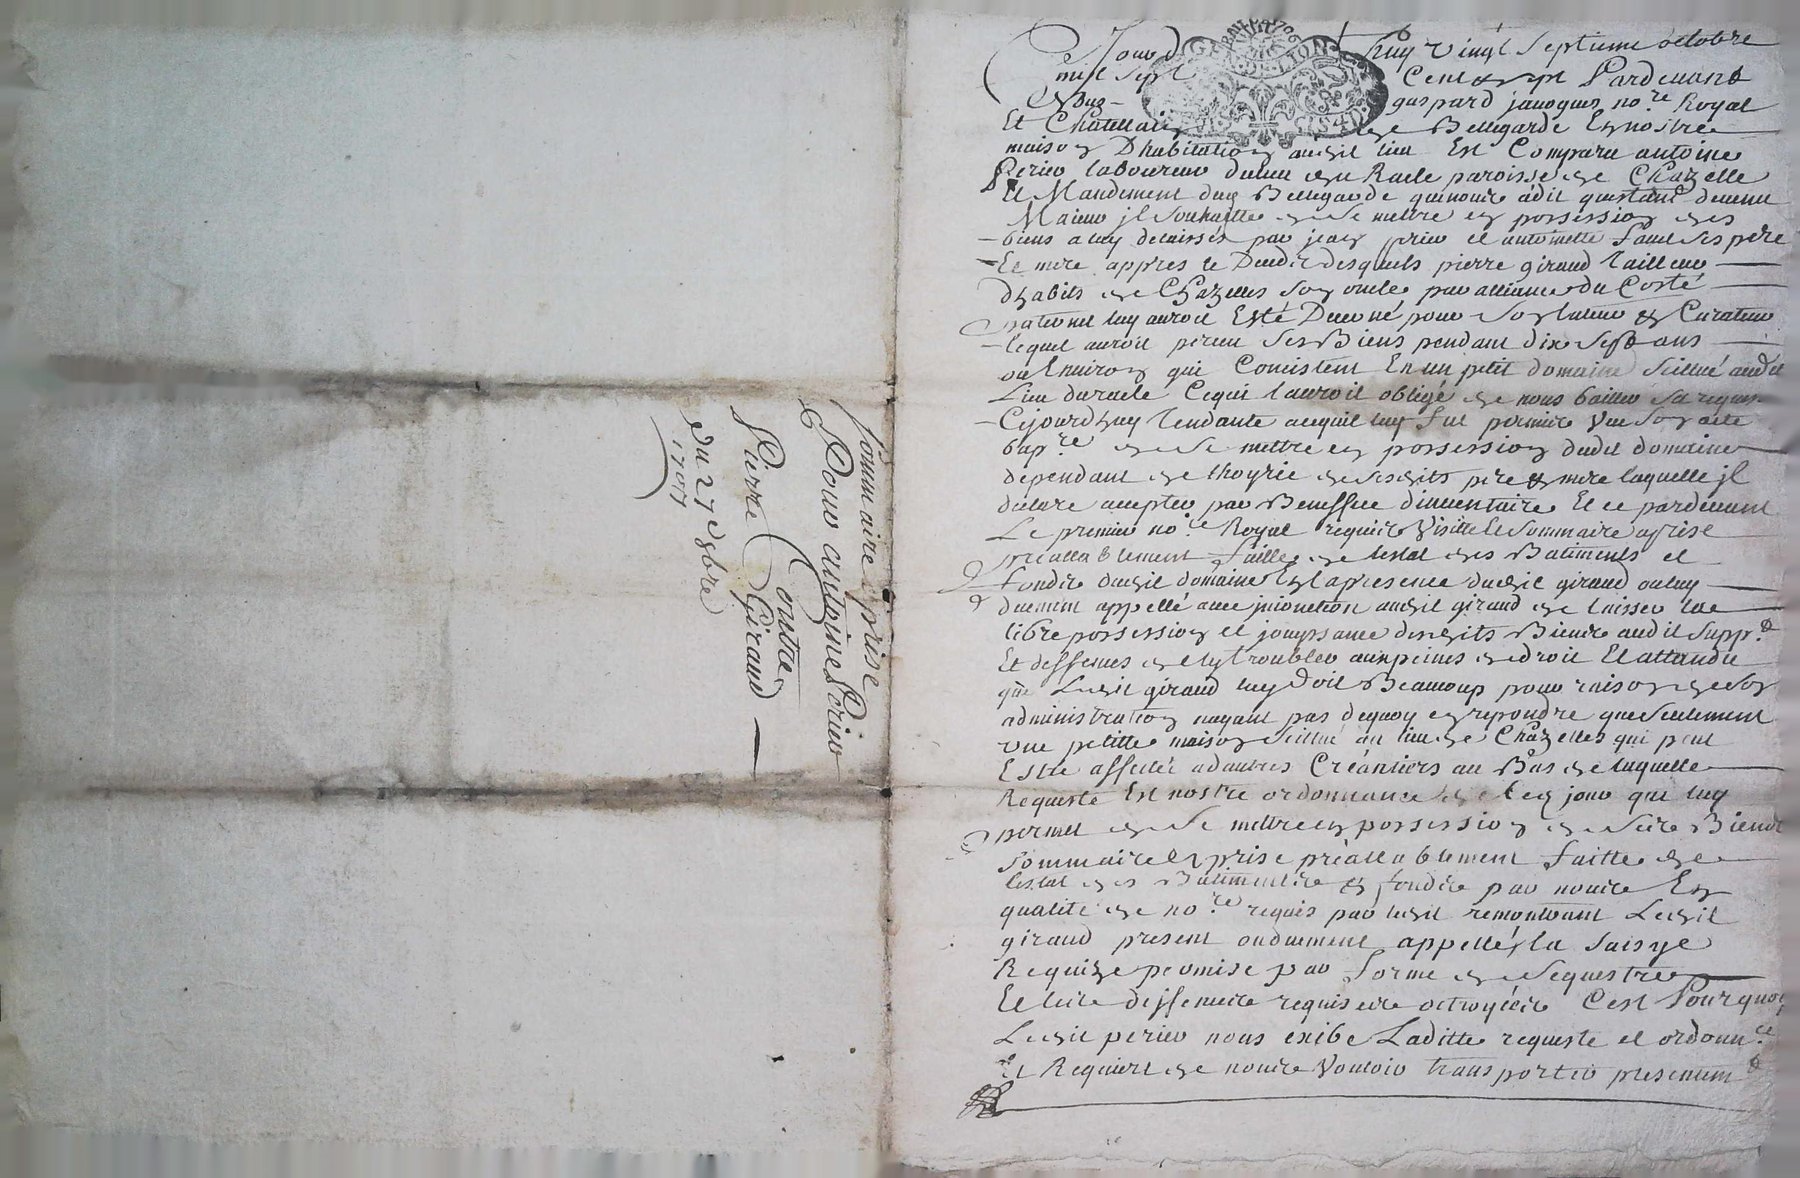 Sommaire aprise
Pour antoine Perieu
Contre
Pierre Giraud
du 27 8bre
1707
Ce Jourdhuy vingt Septieme octobre
mil sept Cent et sept Pardevant
Nous gaspard janoques no.re Royal
Et Chatellain de Bellegarde En nostre
maison Dhabitation audit lieu Est Comparu antoine
Perieu laboureur du lieu du Racle paroisse de Chazelle
Et Mandement dud Bellegarde qui nous a dit questant devenu
Majeur jl souhaitte de se mettre en possession des
biens a luy delaissés par jean perieu et antoinette Faure ses pere
Et mere appres le Deces desquels pierre giraud Tailleur
dhabits de Chazelles son oncle par alliance du Costé
paternel luy auroit Esté Decerné pour son tuteur et Curateur
lequel auroit perceu ses Biens pendant dix Sept ans
ou Environ qui Consistent En un petit domaine Scittué audit
Lieu du racle Ce qui l'auroit obligé de nous bailler sa reques
Cejourdhuy Tendante a ce quil luy fut permis Veu son acte
bap.re de se mettre en possession dudit domaine
dependant de lhoyrie de sesdits pere et mere laquelle jl
declare accepter par Beneffice dinventaire Et ce pardevant
Le premier no.re Royal requis Visitte Et Sommaire aprise
preallablement faitte de lestat des Batiments et
fondz dudit domaine En la presence dudit giraud ou luy
duement appellé avec jnionction audit giraud de laisser la
libre possession et jouyssance desdits Biens audit Supp.t
Et deffences de ly troubler aux peines de droit Et attandu
que Ledit giraud luy doit Beaucoup pour raison de son
administration nayant pas dequoy en repondre que Seulement
vne petitte maison scittué au lieu de Chazelles qui peut
Estre affectée a dautres Créantiers au Bas de laquelle
Requeste Est nostre ordonnance de ce jour qui luy
permet de se mettre en possession de sesd Biens
Sommaire aprise preallablement faitte de
lestat des Batiments et fondz par nous En
qualité de no.re requis par ledit remontrant Ledit
giraud present ou duement appellé la saisye
Requise permise par forme de sequestre
Et les deffences requises octroyées C'est Pourquoy
Ledit perieu nous exibe Laditte requeste et ordonn.ce
Et Requiert de nous Vouloir transporter presentem.t